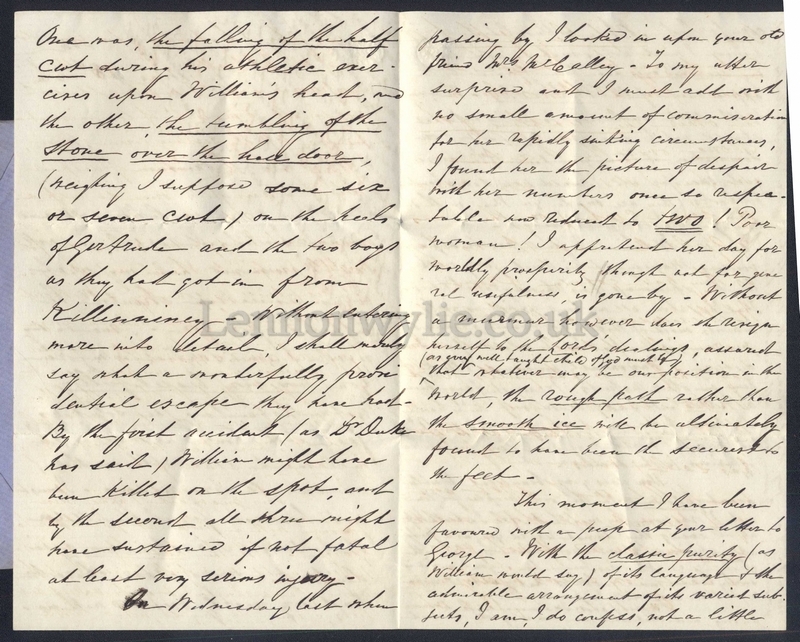 One was, the falling of the half
cwt during his athletic exer-
cises upon Williams head, and
the other, the tumbling of the
Stone over the hall door,
(weighing I suppose some six
or seven cwt) on the heels
of Gertrude and the two boys
as they had got in from
Killinniney - Without entering
more into detail, I shall merely
say what a wonderfully provi
dential escape they have had -
By the first accident (as Dr Duke
has said) William might have
been killed on the spot, and
by the second all three might
have sustained if not fatal
at least very serious injury -
On Wednesday last when
passing by I looked in upon your old
friend Mrs McCalley - To my utter
surprise and I must add with
no small amount of commiseration
for her rapidly sinking circumstances,
I found her the picture of despair
with her numbers once so respec-
table now reduced to two! Poor
woman! I apprehend her day for
worldly prosperity though not for gene
ral usefulness is gone by - Without
a murmur however does she resign
herself to the Lords dealings, assured
(as every well taught child of God must be)
that whatever may be our position in the
world, the rough path rather than
the smooth ice will be ultimately
found to have been the securest to
the feet -
This moment I have been
favoured with a peep at your letter to
George - With the classic purity (as
William would say) of its language & the
admirable arrangement of its varied sub-
jects, I am, I do confess, not a little
Lennonwylie.co.uk